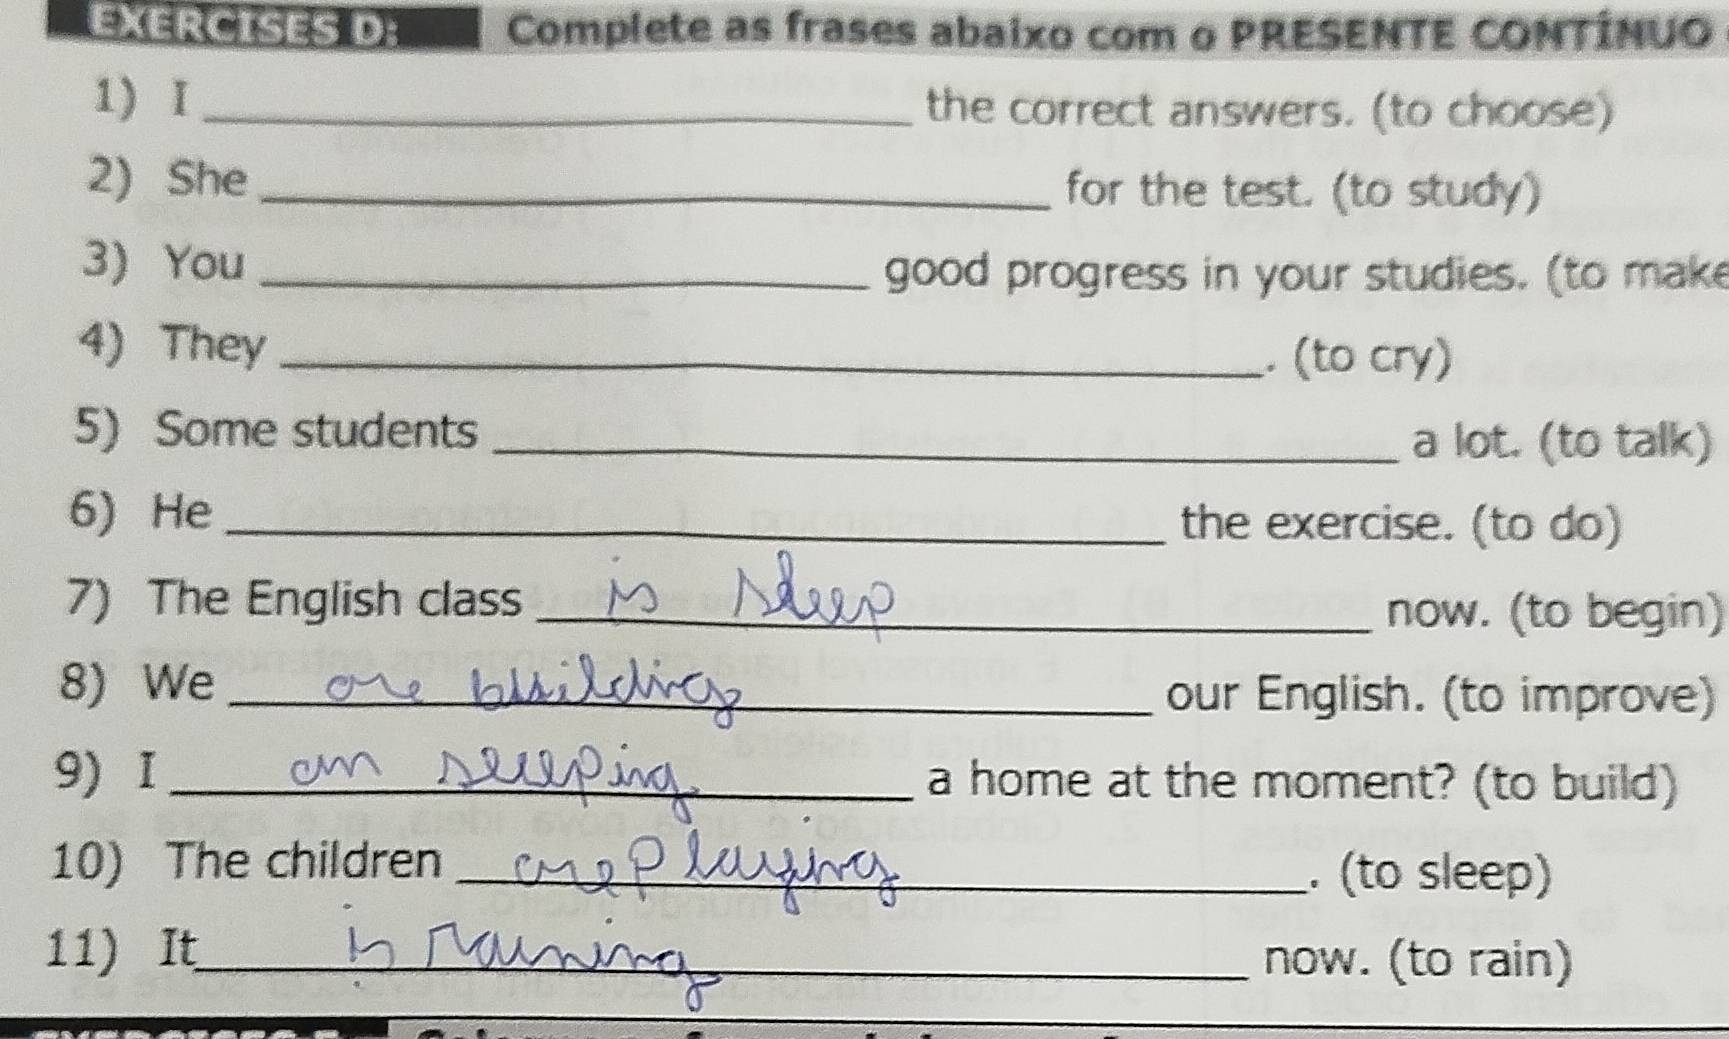 EXERCISES D: Complete as frases abaixo com o PRESENTE CONTÍNUO
1) I ____________ the correct answers. (to choose)
2) She ____________ for the test. (to study)
3) You ____________ good progress in your studies. (to make
4) They ____________. (to cry)
5) Some students ____________ a lot. (to talk)
6) He ____________ the exercise. (to do)
7) The English class is sleep now. (to begin)
8) We are building our English. (to improve)
9) I am sleeping a home at the moment? (to build)
10) The children are playing. (to sleep)
11) It is raining now. (to rain)